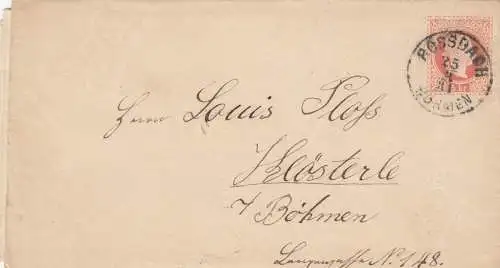 ROSSBACH
25
BÖHMEN
Herrn Louis Ploss
Klösterle
i/ Böhmen
Langegasse No 148.